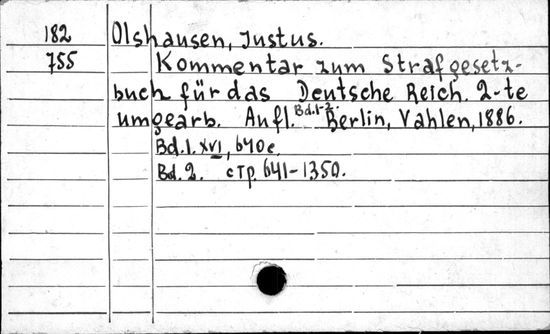 182 Olshausen, Justus.
755 Kommentar zum Strafgesetz-
buch für das Deutsche Reich. 2-te
umgearb. Aufl. Bd.1-2. Berlin, Vahlen, 1886.
Bd.1. XVI, 640 c.
Bd.2. стр. 641-1350.